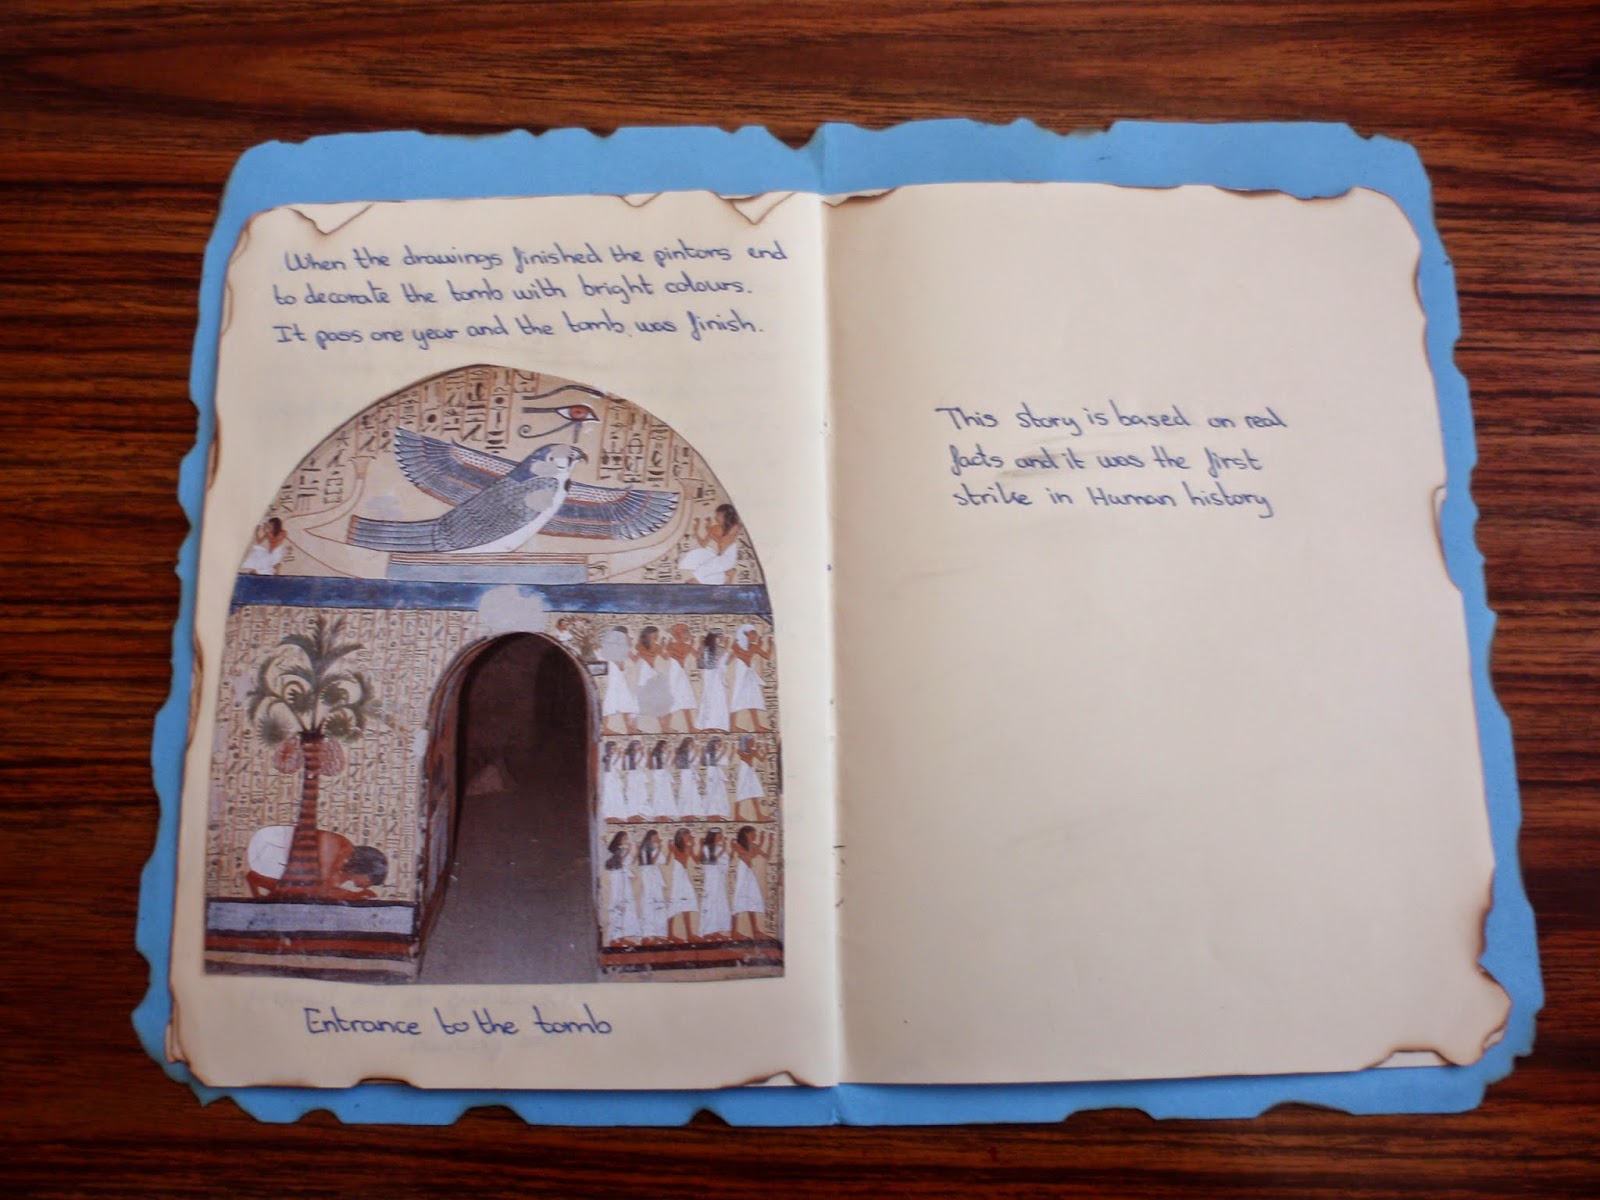 When the drawings finished the pintors end
to decorate the tomb with bright colours.
It pass one year and the tomb was finish.
Entrance to the tomb
This story is based on real
facts and it was the first
strike in Human history